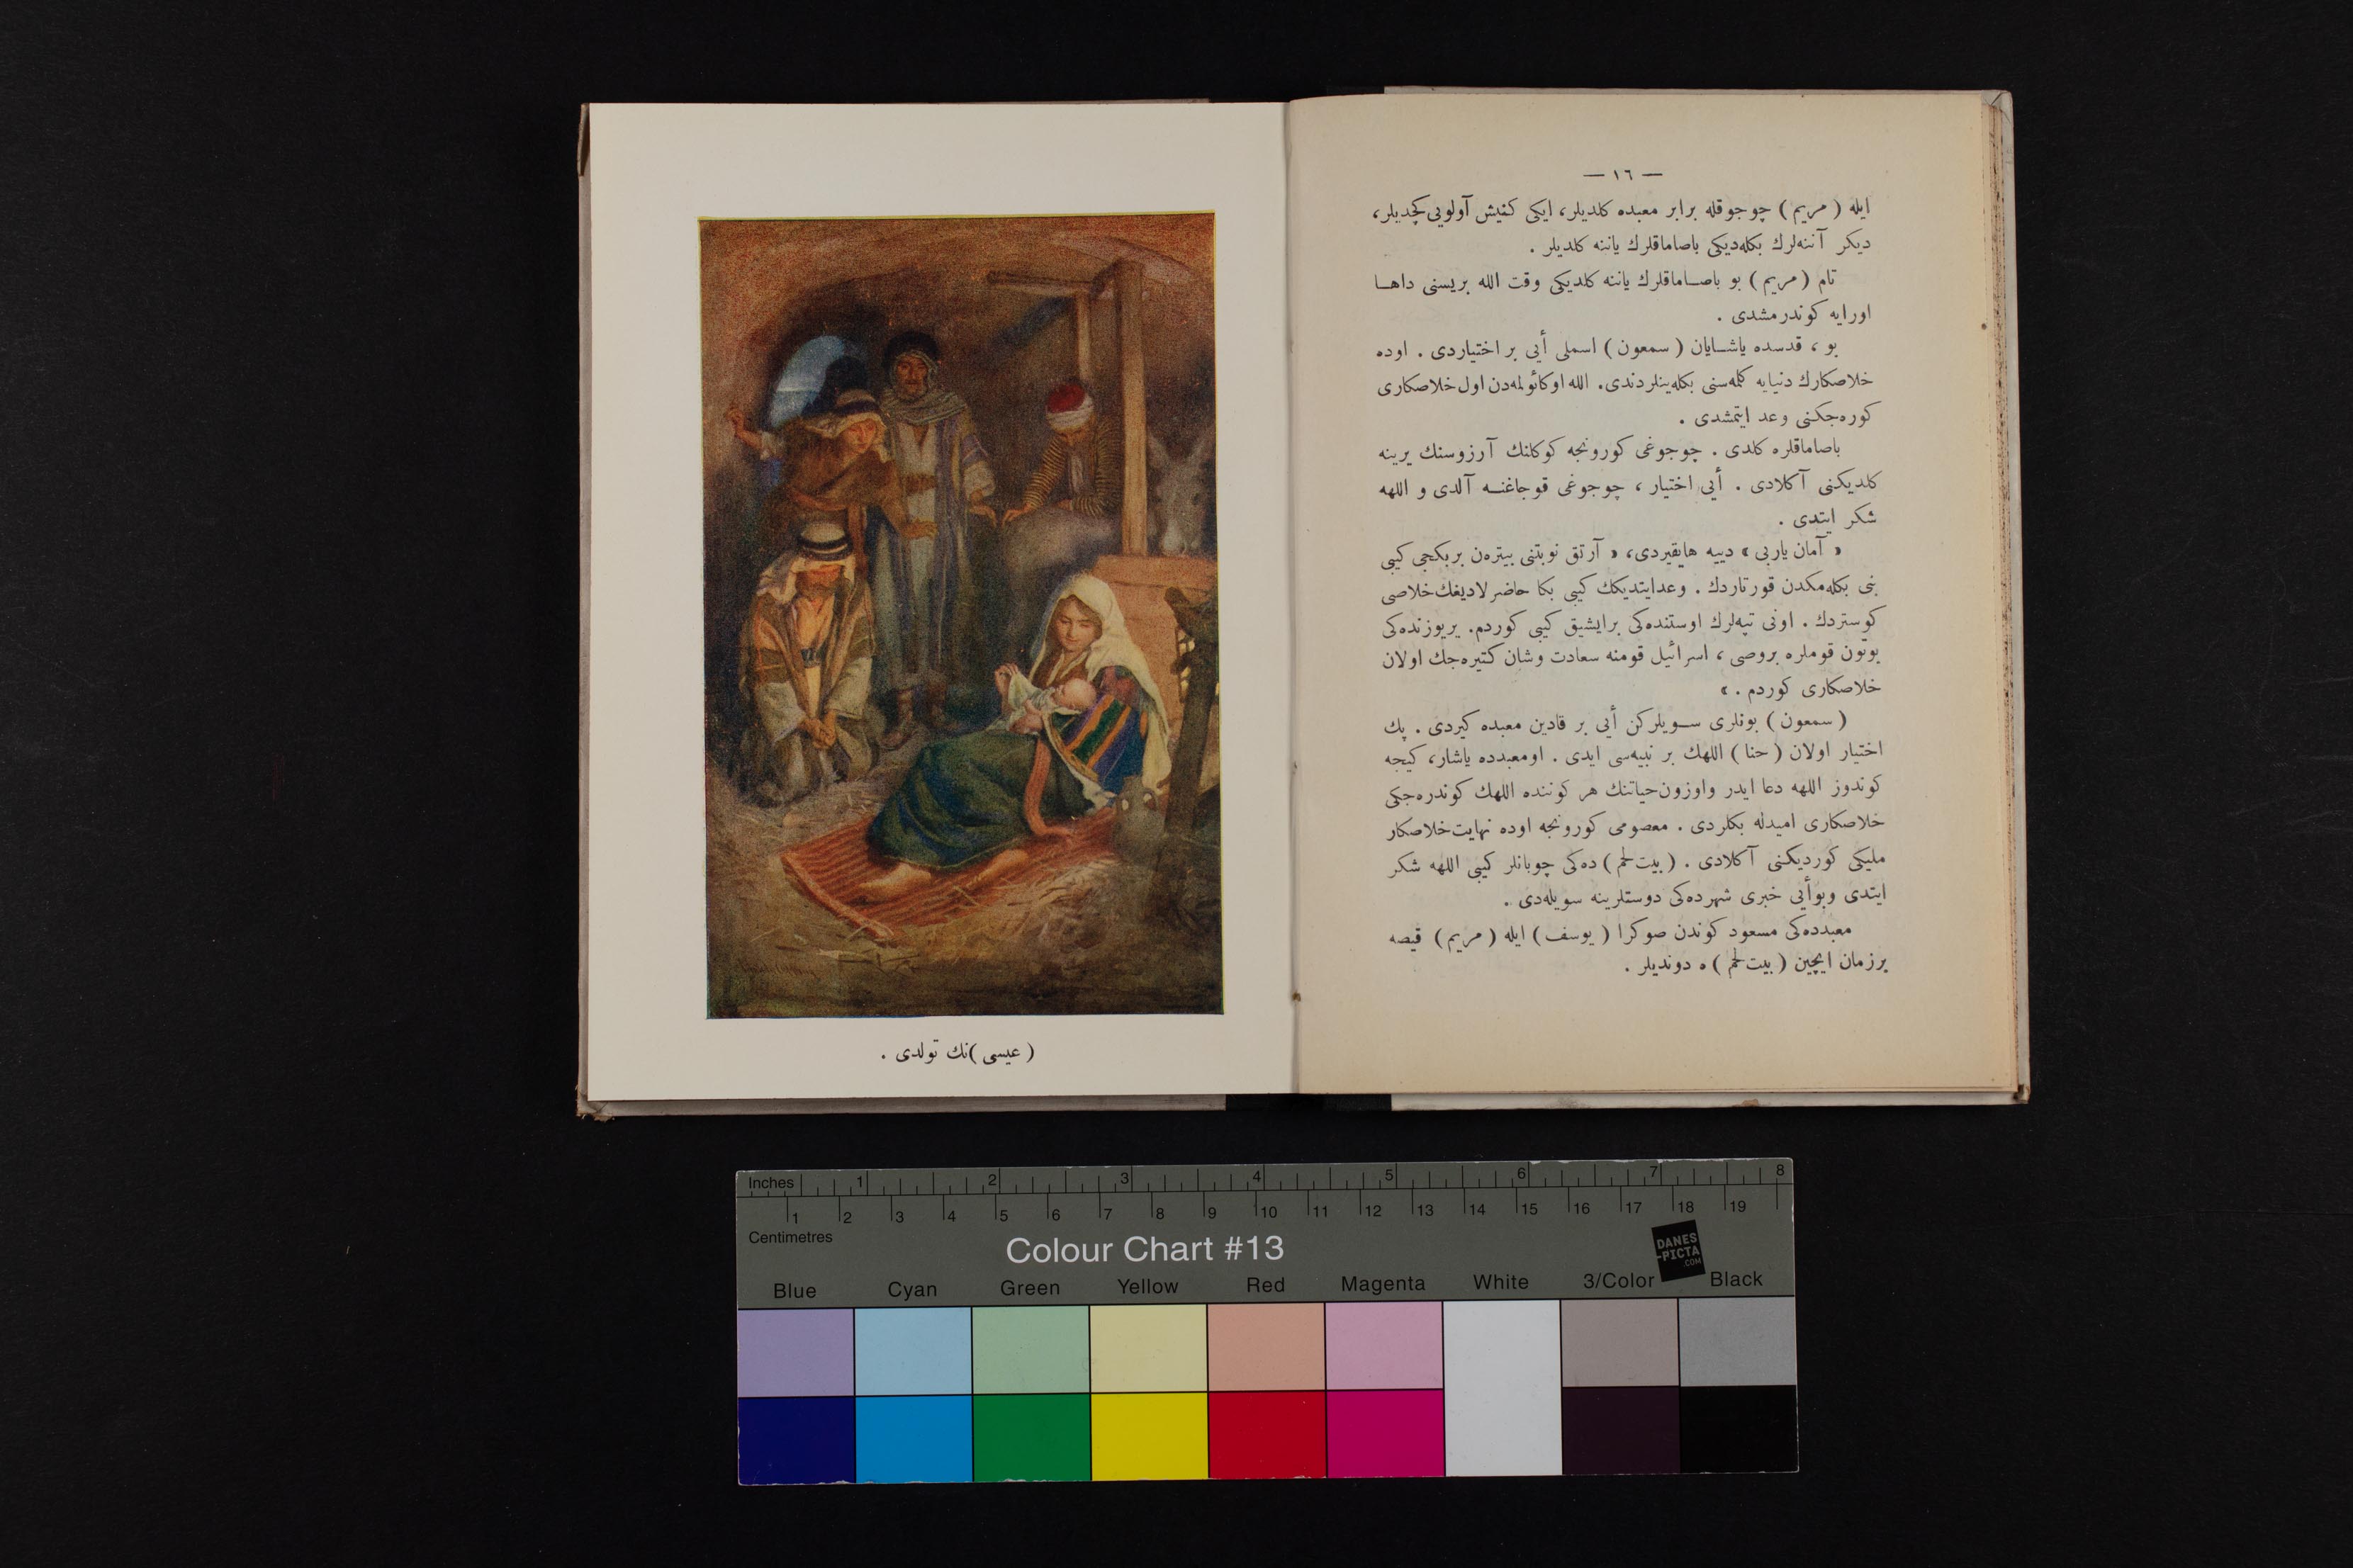 — ١٦ —
ایله ( مریم ) چوجوقله برابر معبده كلدیلر، ایكی كنیش آولویی كچدیلر،
دیكر آننه‌لرك بكله‌دیكی باصاماقلرك یاننه كلدیلر .
تام ( مریم ) بو باصـاماقلرك یاننه كلدیكی وقت الله بریسنی داهـا
اورایه كوندرمشدی .
بو ، قدسده یاشـایان ( سمعون ) اسملی أیی بر اختیاردی . اوده
خلاصكارك دنیایه كلمه‌سنی بكله‌ینلردندی. الله اوكا ئولمه‌دن اول خلاصكاری
كوره‌جكنی وعد ایتمشدی .
باصاماقلره كلدی . چوجوغی كورونجه كوكلنك آرزوسنك یرینه
كلدیكنی آكلادی . أیی اختیار ، چوجوغی قوجاغنـه آلدی و اللهه
شكر ایتدی .
« آمان یاربی » دییه هایقیردی، « آرتق نوبتنی بیتره‌ن بربكجی كیبی
بنی بكله‌مكدن قورتاردك . وعدایتدیكك كیبی بكا حاضرلادیغك خلاصی
كوستردك . اونی تپه‌لرك اوستنده‌كی برایشیق كیبی كوردم. یریوزنده‌كی
بوتون قوملره بروصی ، اسرائیل قومنه سعادت وشان كتیره‌جك اولان
خلاصكاری كوردم . »
( سمعون ) بونلری سـویلركن أیی بر قادین معبده كیردی . پك
اختیار اولان ( حنا ) اللهك بر نبیه‌سی ایدی . اومعبدده یاشار، كیجه
كوندوز اللهه دعا ایدر واوزون حیاتنك هر كوننده اللهك كوندره‌جكی
خلاصكاری امیدله بكلردی . معصومی كورونجه اوده نهایت خلاصكار
ملیكی كوردیكنی آكلادی . ( بیت لحم ) ده‌كی چوبانلر كیبی اللهه شكر
ایتدی وبوأیی خبری شهرده‌كی دوستلرینه سویله‌دی .
معبدده‌كی مسعود كوندن صوكرا ( یوسف ) ایله ( مریم ) قیصه
برزمان ایچین ( بیت لحم ) ه دوندیلر .
( عیسی )نك تولدی .
Inches 1 2 3 4 5 6 7 8
1 2 3 4 5 6 7 8 9 10 11 12 13 14 15 16 17 18 19
Centimetres
Colour Chart #13
DANES
-PICTA
.COM
Blue Cyan Green Yellow Red Magenta White 3/Color Black